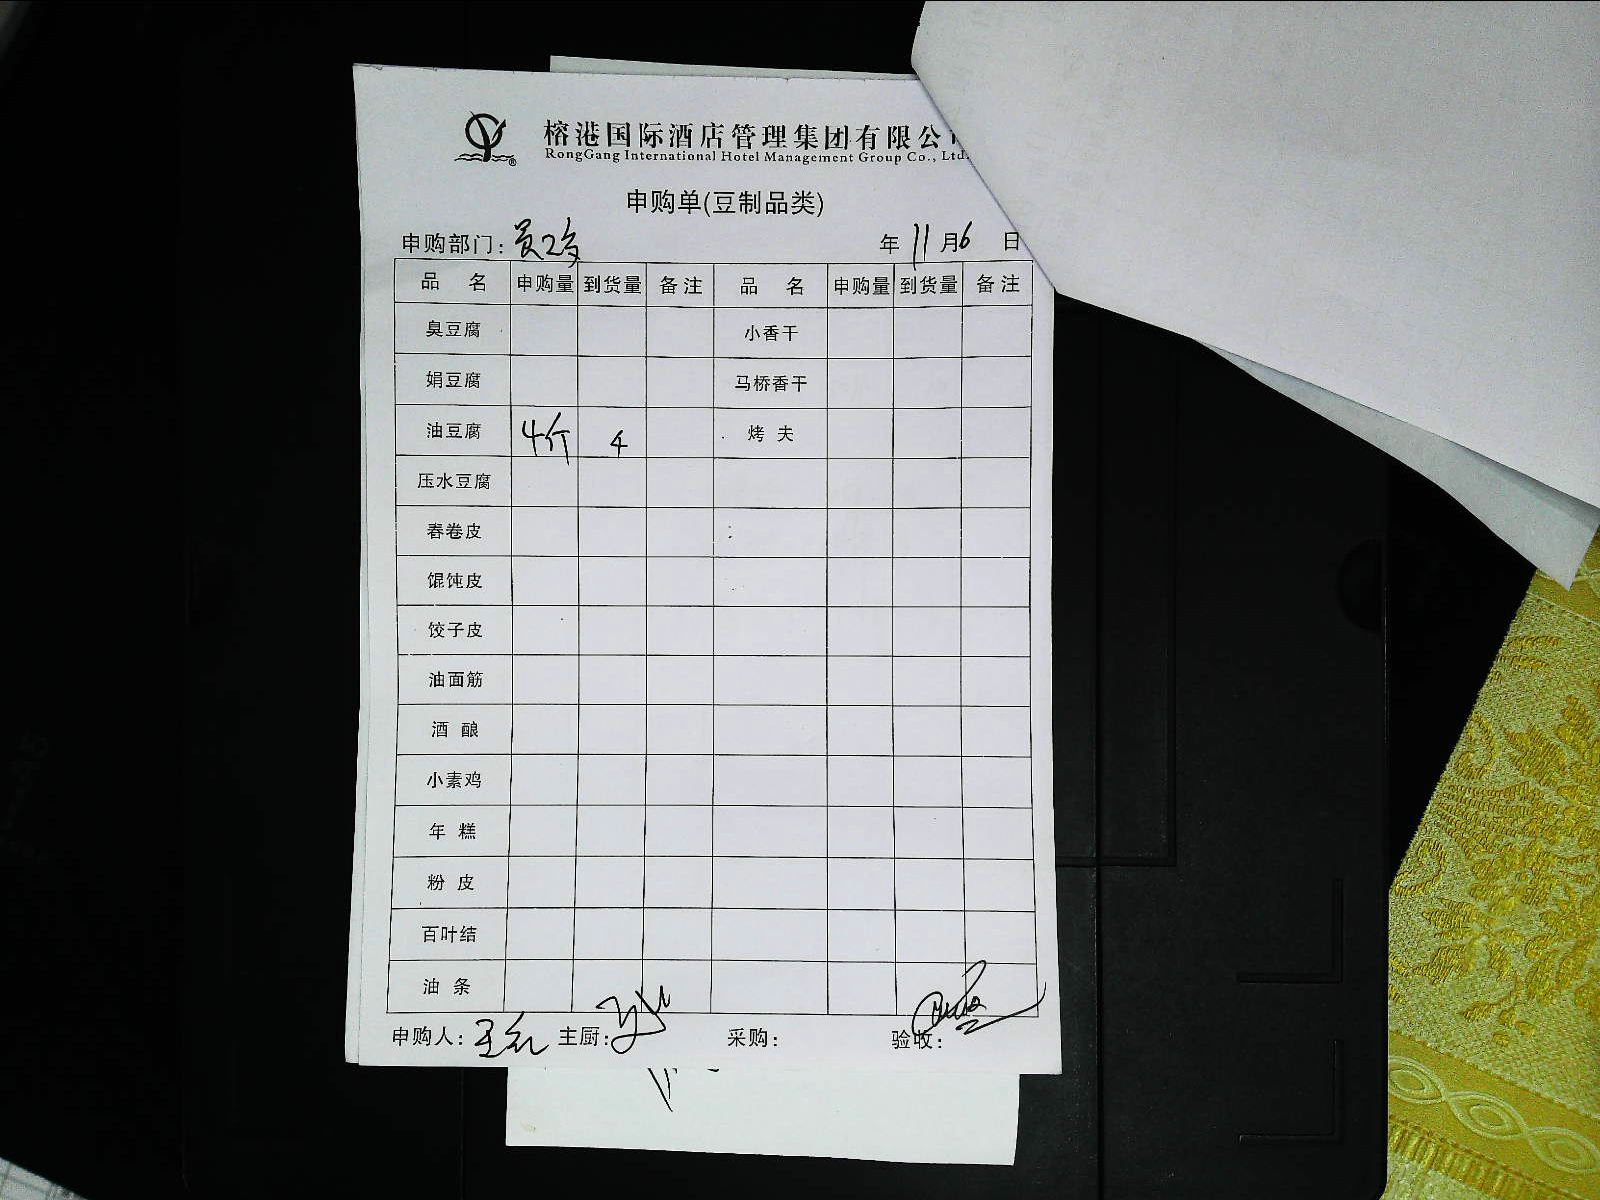 榕港国际酒店管理集团有限公
RongGang International Hotel Management Group Co., Ltd.
申购单(豆制品类)
申购部门: 员工 年 11 月 6 日
品 名 申购量 到货量 备注 品 名 申购量 到货量 备注
臭豆腐 小香干
娟豆腐 马桥香干
油豆腐 4斤 4 烤 夫
压水豆腐
春卷皮
馄饨皮
饺子皮
油面筋
酒 酿
小素鸡
年 糕
粉 皮
百叶结
油 条
申购人: 王红 主厨: 采购: 验收: